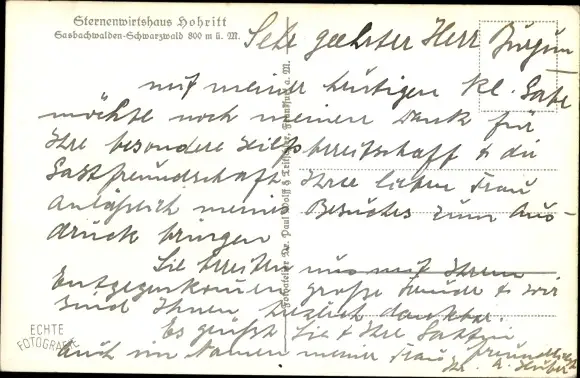 Sternenwirtshaus Hohritt
Sasbachwalden-Schwarzwald 800 m ü. M.
Sehr geehrter Herr
mit meiner heutigen kl. Gabe
möchte noch meinen Dank für
Ihre besondere Hilfsbereitschaft & die
Gastfreundschaft Ihrer lieben Frau
anläßlich meines Besuches zum Aus-
druck bringen
Sie bereiten uns mit Ihrem
Entgegenkommen große Freude & wir
sind Ihnen herzlich dankbar.
Es grüßt Sie & Ihre Gattin
auch im Namen meiner Frau freundlichst
Ihr A. Huber
Fotoatelier Dr. Paul Wolff & Tritschler, Frankfurt a. M.
ECHTE
FOTOGRAFIE